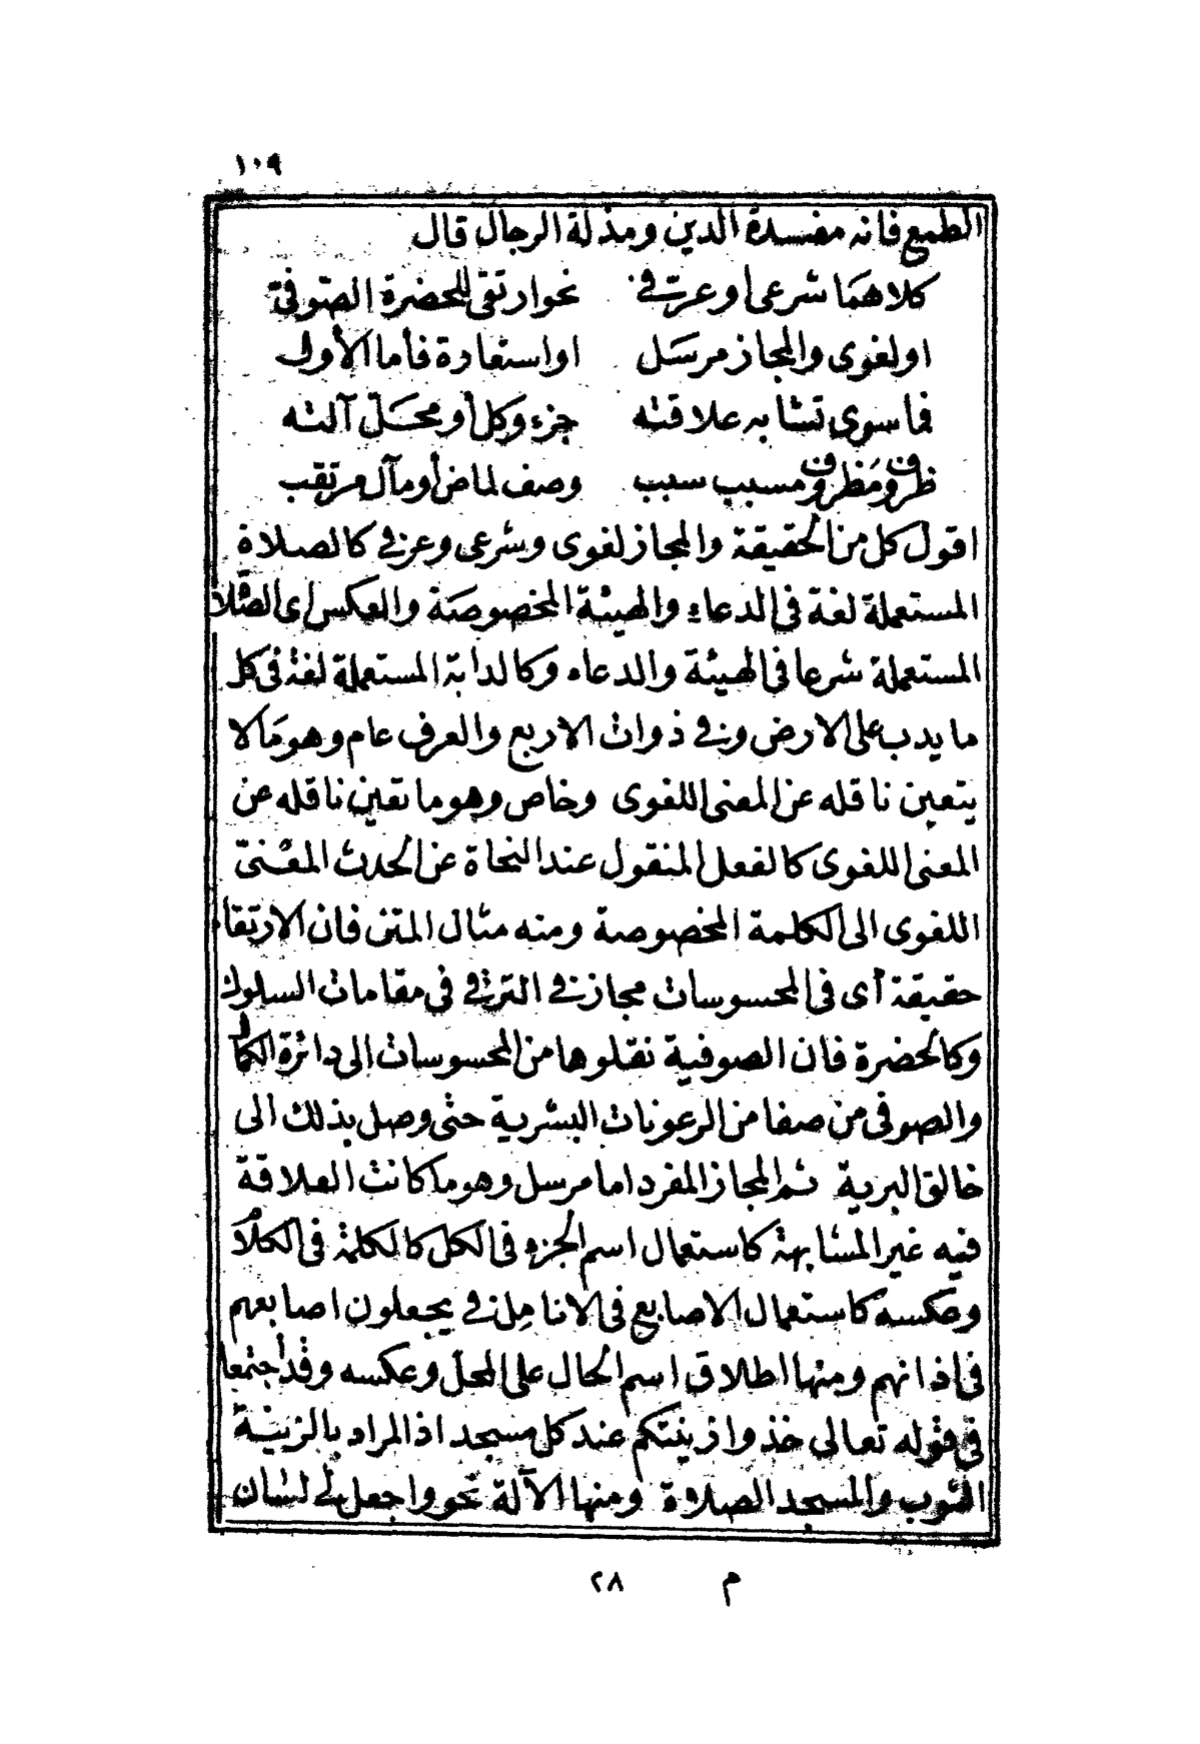 ١٠٩
الطمع فانه مفسدة الدين ومذلة الرجال قال
كلاهما شرعي أو عرفي نحو ارتقى للحضرة الصوفي
او لغوى والمجاز مرسل او استعارة فأما الأول
فما سوى تشابه علاقته جزء وكل أو محل آلته
ظرف ومظروف مسبب سبب وصف لماض أو مآل مرتقب
اقول كل من الحقيقة والمجاز لغوى وشرعى وعرفي كالصلاة
المستعملة لغة في الدعاء والهيئة المخصوصة والعكس اى الصلاة
المستعملة شرعا في الهيئة والدعاء وكالدابة المستعملة لغة في كل
ما يدب على الارض وفي ذوات الاربع والعرف عام وهو مالا
يتعين ناقله عن المعنى اللغوى وخاص وهو ما تعين ناقله عن
المعنى اللغوى كالفعل المنقول عند النحاة عن الحدث المعنى
اللغوى الى الكلمة المخصوصة ومنه مثال المتن فان الارتقاء
حقيقة أى في المحسوسات مجاز في الترقي في مقامات السلوك
وكالحضرة فان الصوفية نقلوها من المحسوسات الى دائرة الكمال
والصوفي من صفا من الرعونات البشرية حتى وصل بذلك الى
خالق البرية ثم المجاز المفرد اما مرسل وهو ما كانت العلاقة
فيه غير المشابهة كاستعمال اسم الجزء في الكل كالكلمة في الكلام
وعكسه كاستعمال الاصابع في الانامل في يجعلون اصابعهم
في اذانهم ومنها اطلاق اسم الحال على المحل وعكسه وقد اجتمعا
في قوله تعالى خذوا زينتكم عند كل مسجد اذ المراد بالزينة
الثوب والمسجد الصلاة ومنها الآلة نحو واجعل لي لسان
م ٢٨